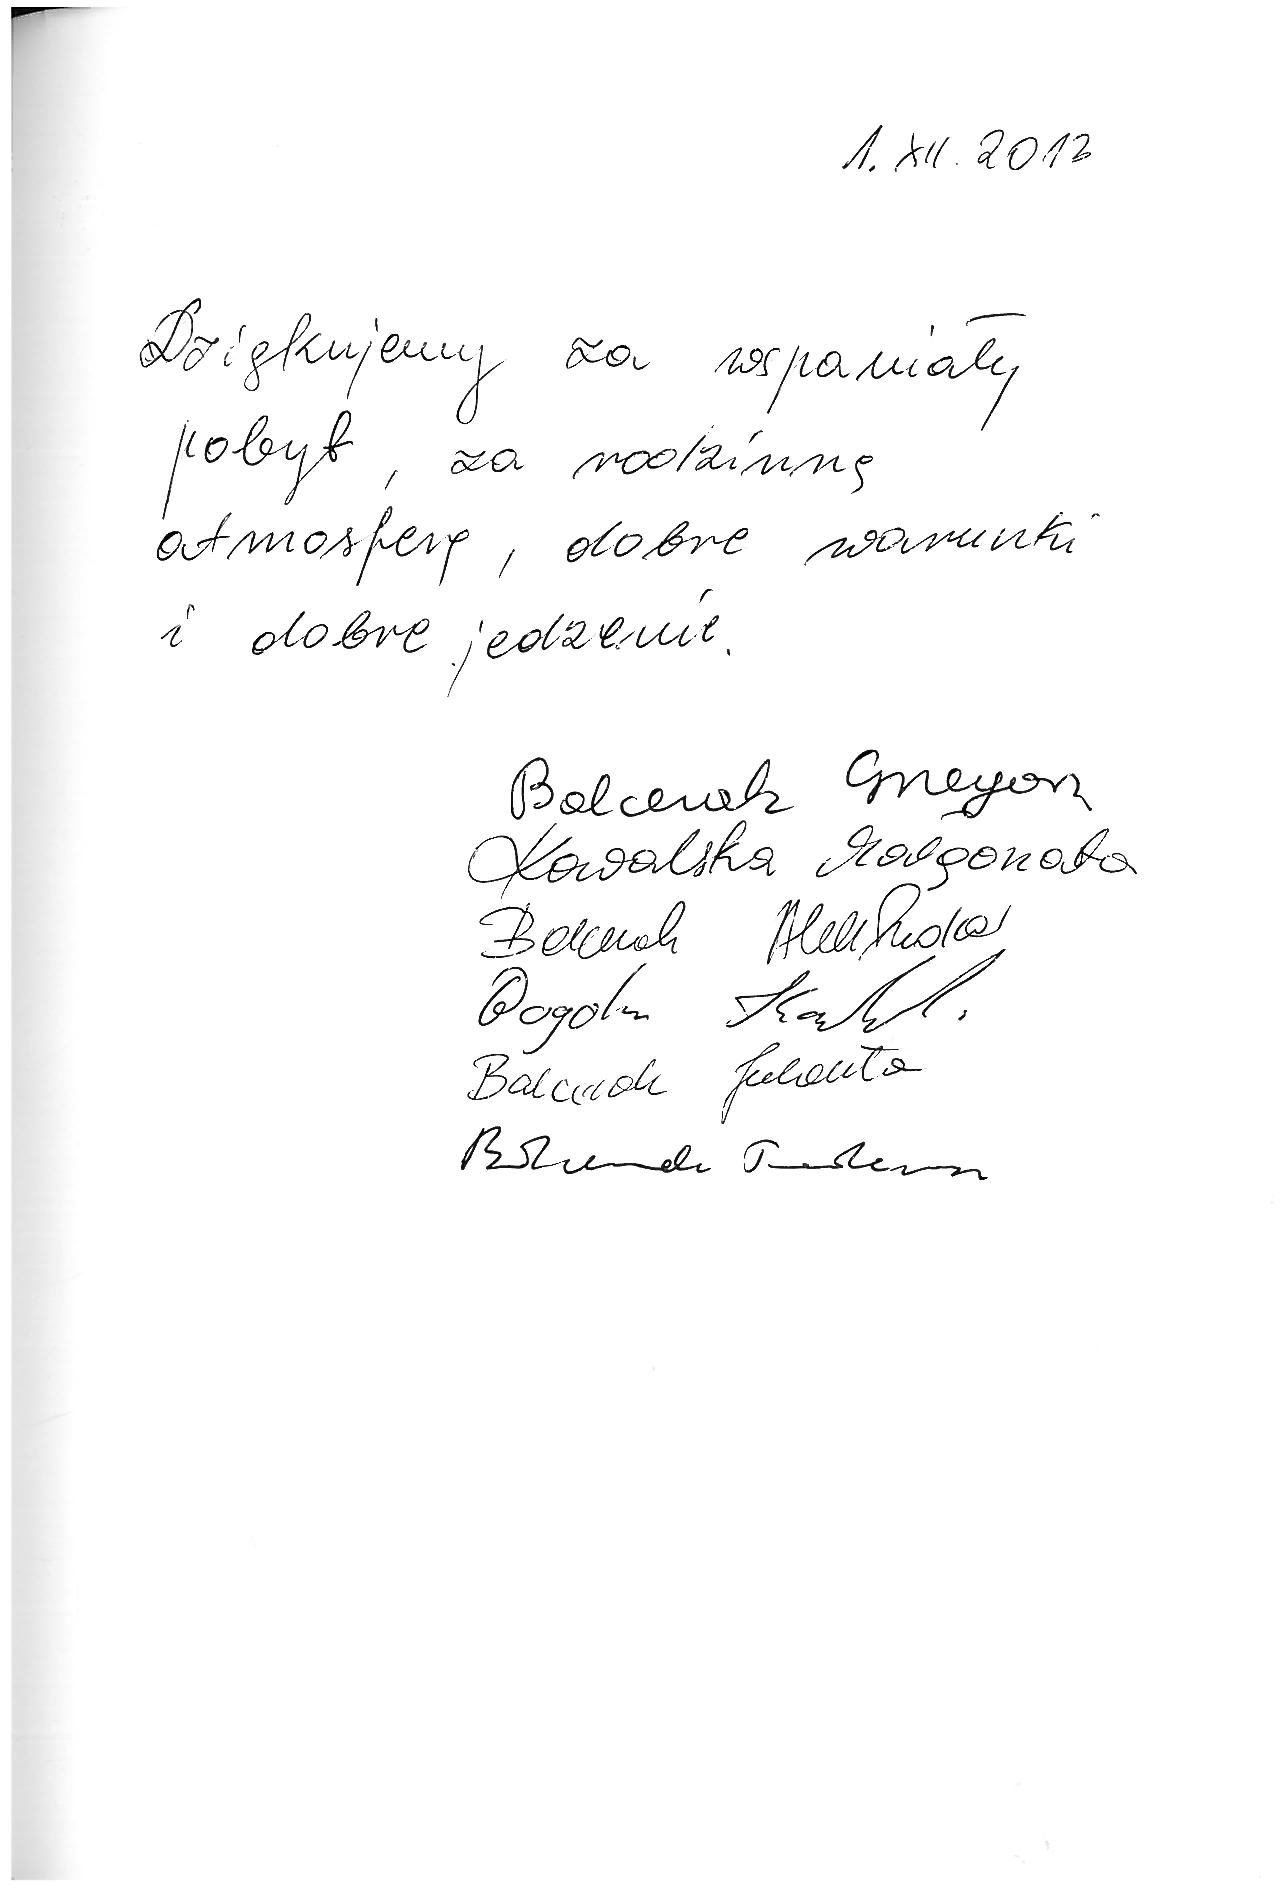 1. XII. 2012
Dziękujemy za wspaniały
pobyt, za rodzinną
atmosferę, dobre warunki
i dobre jedzenie.
Balcerak Grzegorz
Kowalska Małgorzata
Balcerak Aleksandra
Balcerak Jolanta
Balcerak